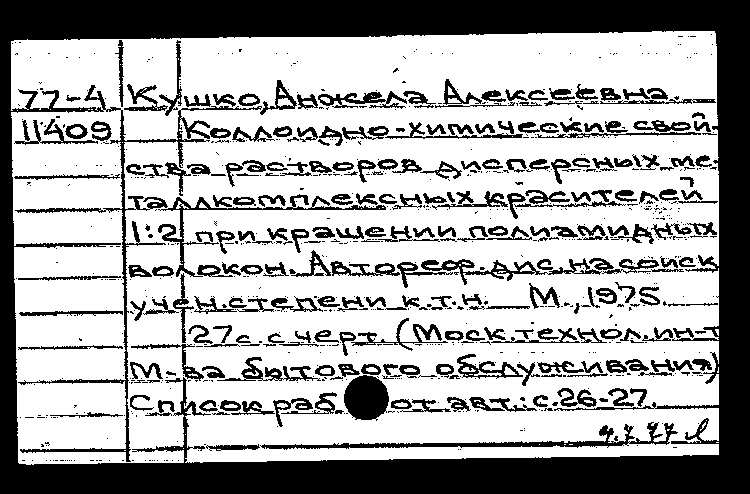 77-4 Кушко, Анжела Алексеевна.
11409 Коллоидно-химические свой-
ства растворов дисперсных ме-
таллкомплексных красителей
1:2 при крашении полиамидных
волокон. Автореф. дис. на соиск.
учен. степени к.т.н. М., 1975.
27с. с черт. (Моск. технол. ин-т
М-ва бытового обслуживания)
Список раб от авт.: с. 26-27.